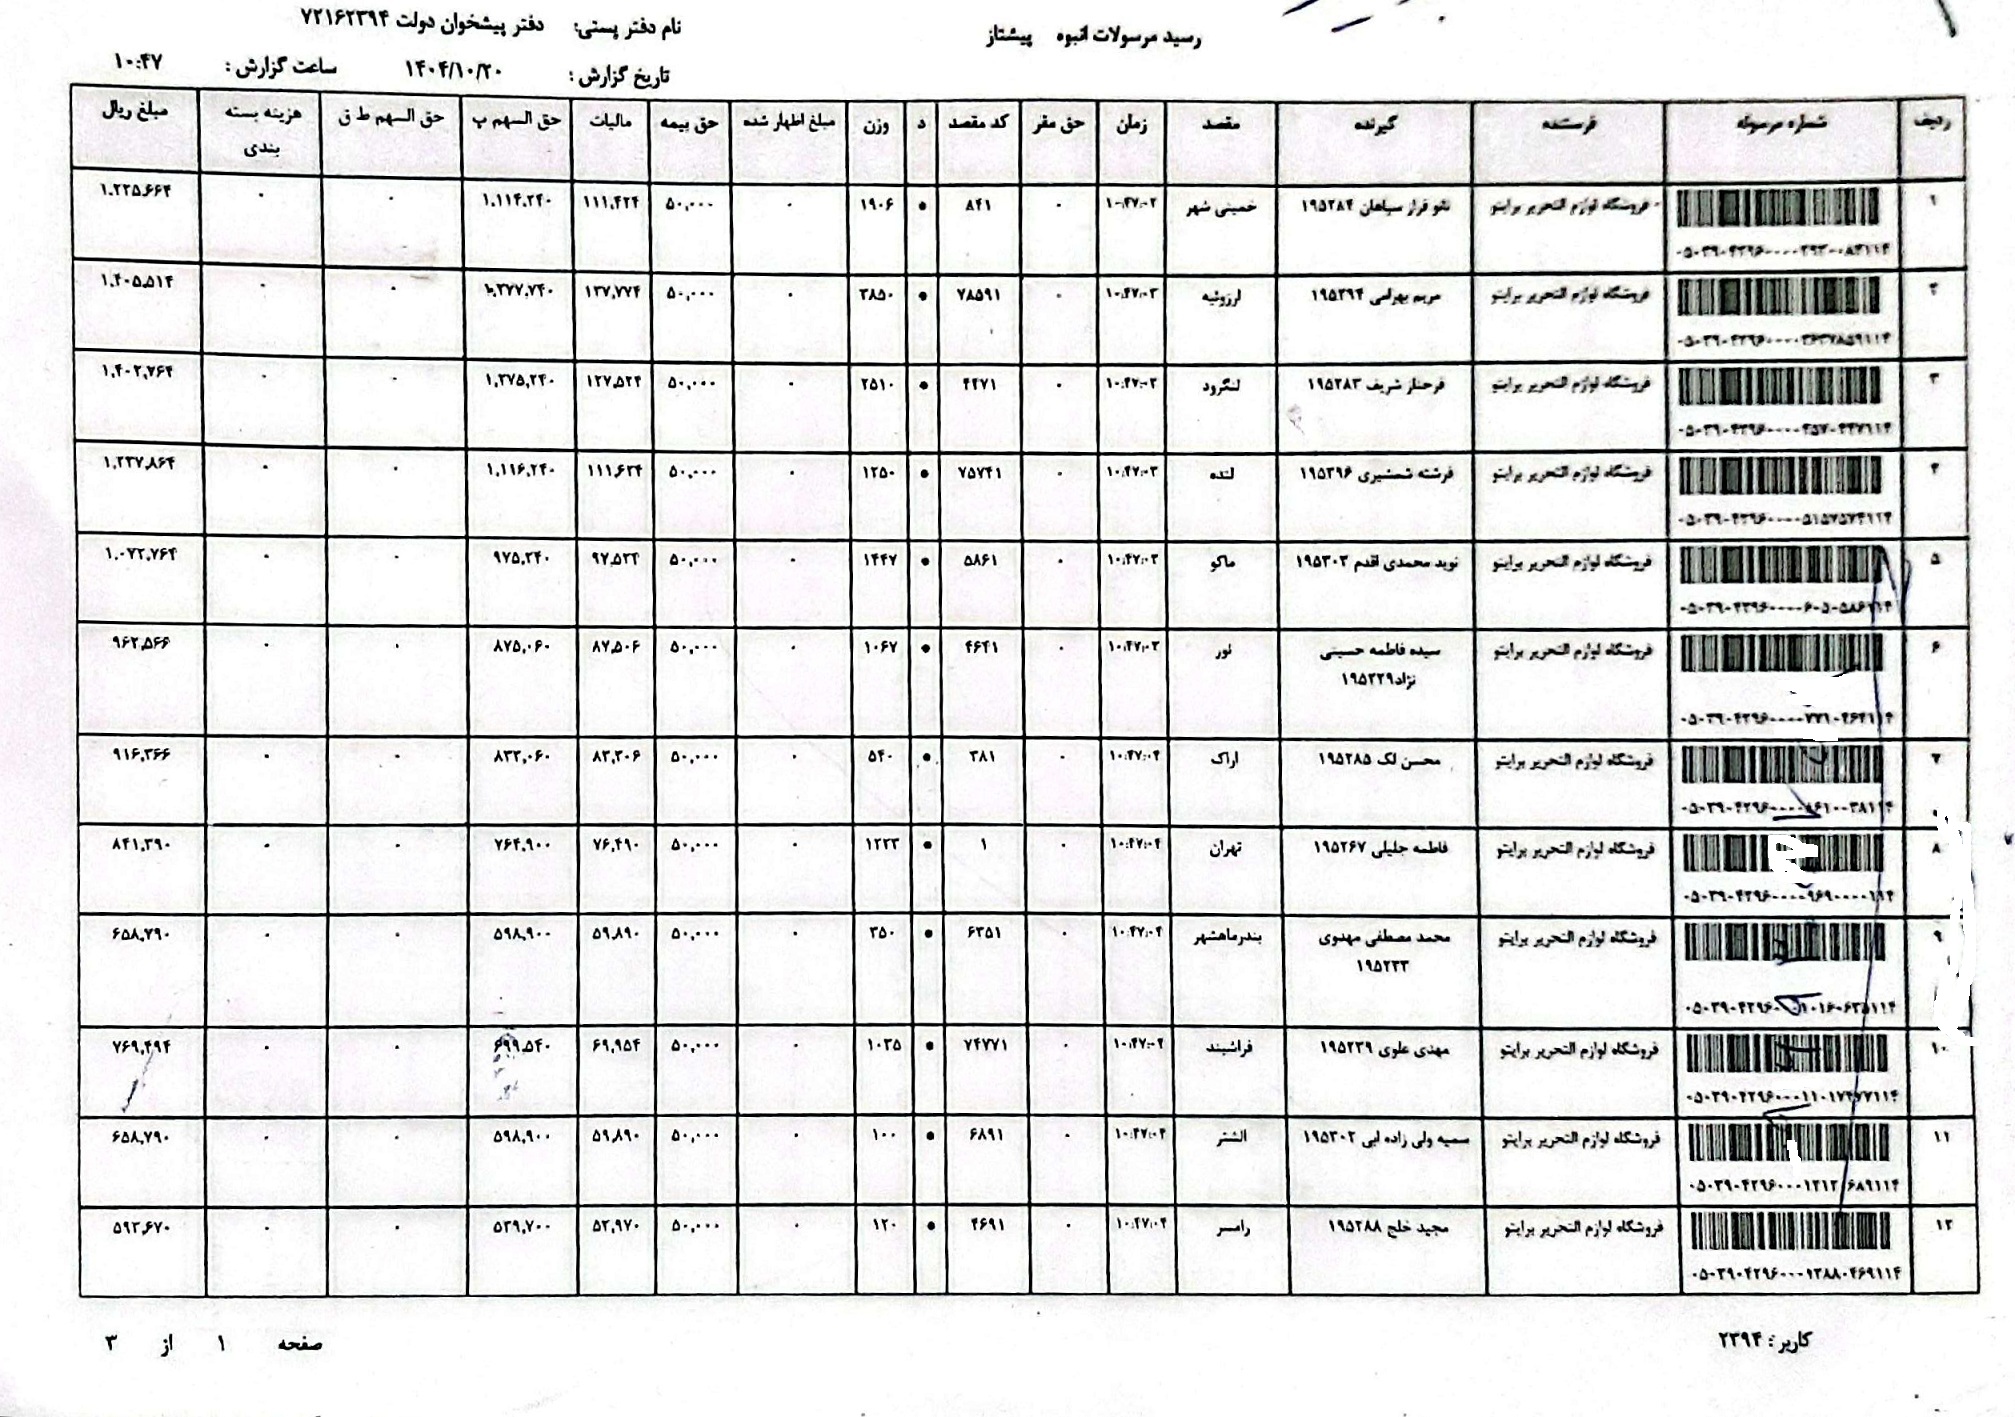 رسید مرسولات انبوه پیشتاز
نام دفتر پستی: دفتر پیشخوان دولت ۷۲۱۶۲۳۹۴
تاریخ گزارش: ۱۴۰۴/۱۰/۲۰ ساعت گزارش: ۱۰:۴۷
ردیف شماره مرسوله فرستنده گیرنده مقصد زمان حق مقر کد مقصد د وزن مبلغ اظهار شده حق بیمه مالیات حق السهم پ حق السهم ط ق هزینه بسته بندی مبلغ ریال
۱ فروشگاه لوازم التحریر برایتو نئو فراز سپاهان ۱۹۵۲۸۴ خمینی شهر ۱۰:۴۷:۰۲ ۰ ۸۴۱ ۱۹۰۶ ۰ ۵۰,۰۰۰ ۱۱۱,۴۲۴ ۱,۱۱۴,۲۴۰ ۰ ۰ ۱,۲۲۵,۶۶۴
۲ فروشگاه لوازم التحریر برایتو مریم بهرامی ۱۹۵۲۹۴ ارزوئیه ۱۰:۴۷:۰۳ ۰ ۷۸۵۹۱ ۳۸۵۰ ۰ ۵۰,۰۰۰ ۱۳۷,۷۷۴ ۱,۳۷۷,۷۴۰ ۰ ۰
۳ فروشگاه لوازم التحریر برایتو فرحناز شریف ۱۹۵۲۸۳ لنگرود ۱۰:۴۷:۰۳ ۰ ۴۴۷۱ ۲۵۱۰ ۰ ۵۰,۰۰۰ ۰ ۰
۴ فروشگاه لوازم التحریر برایتو فرشته شمشیری ۱۹۵۲۹۶ لنده ۱۰:۴۷:۰۳ ۰ ۷۵۷۴۱ ۱۲۵۰ ۰ ۵۰,۰۰۰ ۱۱۱,۶۲۴ ۱,۱۱۶,۲۴۰ ۰ ۰
۵ فروشگاه لوازم التحریر برایتو نوید محمدی اقدم ۱۹۵۳۰۳ ماکو ۱۰:۴۷:۰۳ ۰ ۵۸۶۱ ۱۴۴۷ ۰ ۵۰,۰۰۰ ۹۷,۵۲۴ ۹۷۵,۲۴۰ ۰ ۰ ۱,۰۷۲,۷۶۴
۶ فروشگاه لوازم التحریر برایتو سیده فاطمه حسینی نور ۱۰:۴۷:۰۳ ۰ ۴۶۴۱ ۱۰۶۷ ۰ ۵۰,۰۰۰ ۸۷,۵۰۶ ۸۷۵,۰۶۰ ۰ ۰ ۹۶۲,۵۶۶
نژاد۱۹۵۲۲۹
۷ فروشگاه لوازم التحریر برایتو محسن لک ۱۹۵۲۸۵ اراک ۱۰:۴۷:۰۴ ۰ ۳۸۱ ۵۴۰ ۰ ۵۰,۰۰۰ ۸۳,۳۰۶ ۸۳۳,۰۶۰ ۰ ۰ ۹۱۶,۳۶۶
۸ فروشگاه لوازم التحریر برایتو فاطمه جلیلی ۱۹۵۲۶۷ تهران ۱۰:۴۷:۰۴ ۰ ۱ ۱۲۲۳ ۰ ۵۰,۰۰۰ ۷۶,۴۹۰ ۷۶۴,۹۰۰ ۰ ۰ ۸۴۱,۳۹۰
۹ فروشگاه لوازم التحریر برایتو محمد مصطفی مهدوی بندرماهشهر ۱۰:۴۷:۰۴ ۰ ۶۳۵۱ ۳۵۰ ۰ ۵۰,۰۰۰ ۵۹,۸۹۰ ۵۹۸,۹۰۰ ۰ ۰ ۶۵۸,۷۹۰
۱۹۵۲۳۳
۱۰ فروشگاه لوازم التحریر برایتو مهدی علوی ۱۹۵۲۳۹ فراشبند ۱۰:۴۷:۰۴ ۰ ۷۴۷۷۱ ۱۰۳۵ ۰ ۵۰,۰۰۰ ۶۹,۹۵۴ ۶۹۹,۵۴۰ ۰ ۰ ۷۶۹,۴۹۴
۱۱ فروشگاه لوازم التحریر برایتو سمیه ولی زاده ابی ۱۹۵۳۰۲ الشتر ۱۰:۴۷:۰۴ ۰ ۶۸۹۱ ۱۰۰ ۰ ۵۰,۰۰۰ ۵۹,۸۹۰ ۵۹۸,۹۰۰ ۰ ۰ ۶۵۸,۷۹۰
۱۲ فروشگاه لوازم التحریر برایتو مجید خلج ۱۹۵۲۸۸ رامسر ۱۰:۴۷:۰۴ ۰ ۴۶۹۱ ۱۲۰ ۰ ۵۰,۰۰۰ ۵۳,۹۷۰ ۵۳۹,۷۰۰ ۰ ۰ ۵۹۳,۶۷۰
کاربر: ۲۳۹۴
صفحه ۱ از ۳